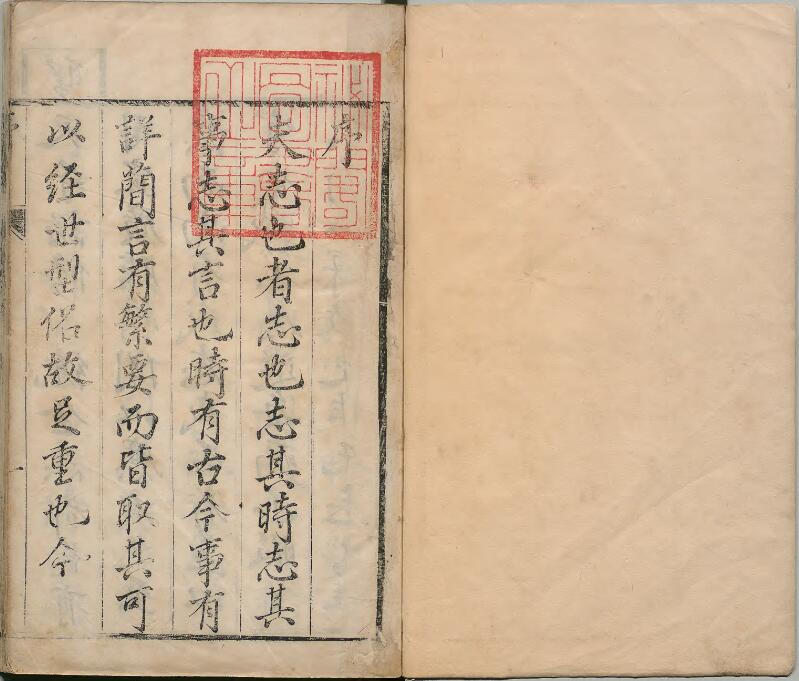 序
夫志也者志也志其時志其
事志其言也時有古今事有
詳簡言有繁要而皆取其可
以経世型俗故足重也今
一